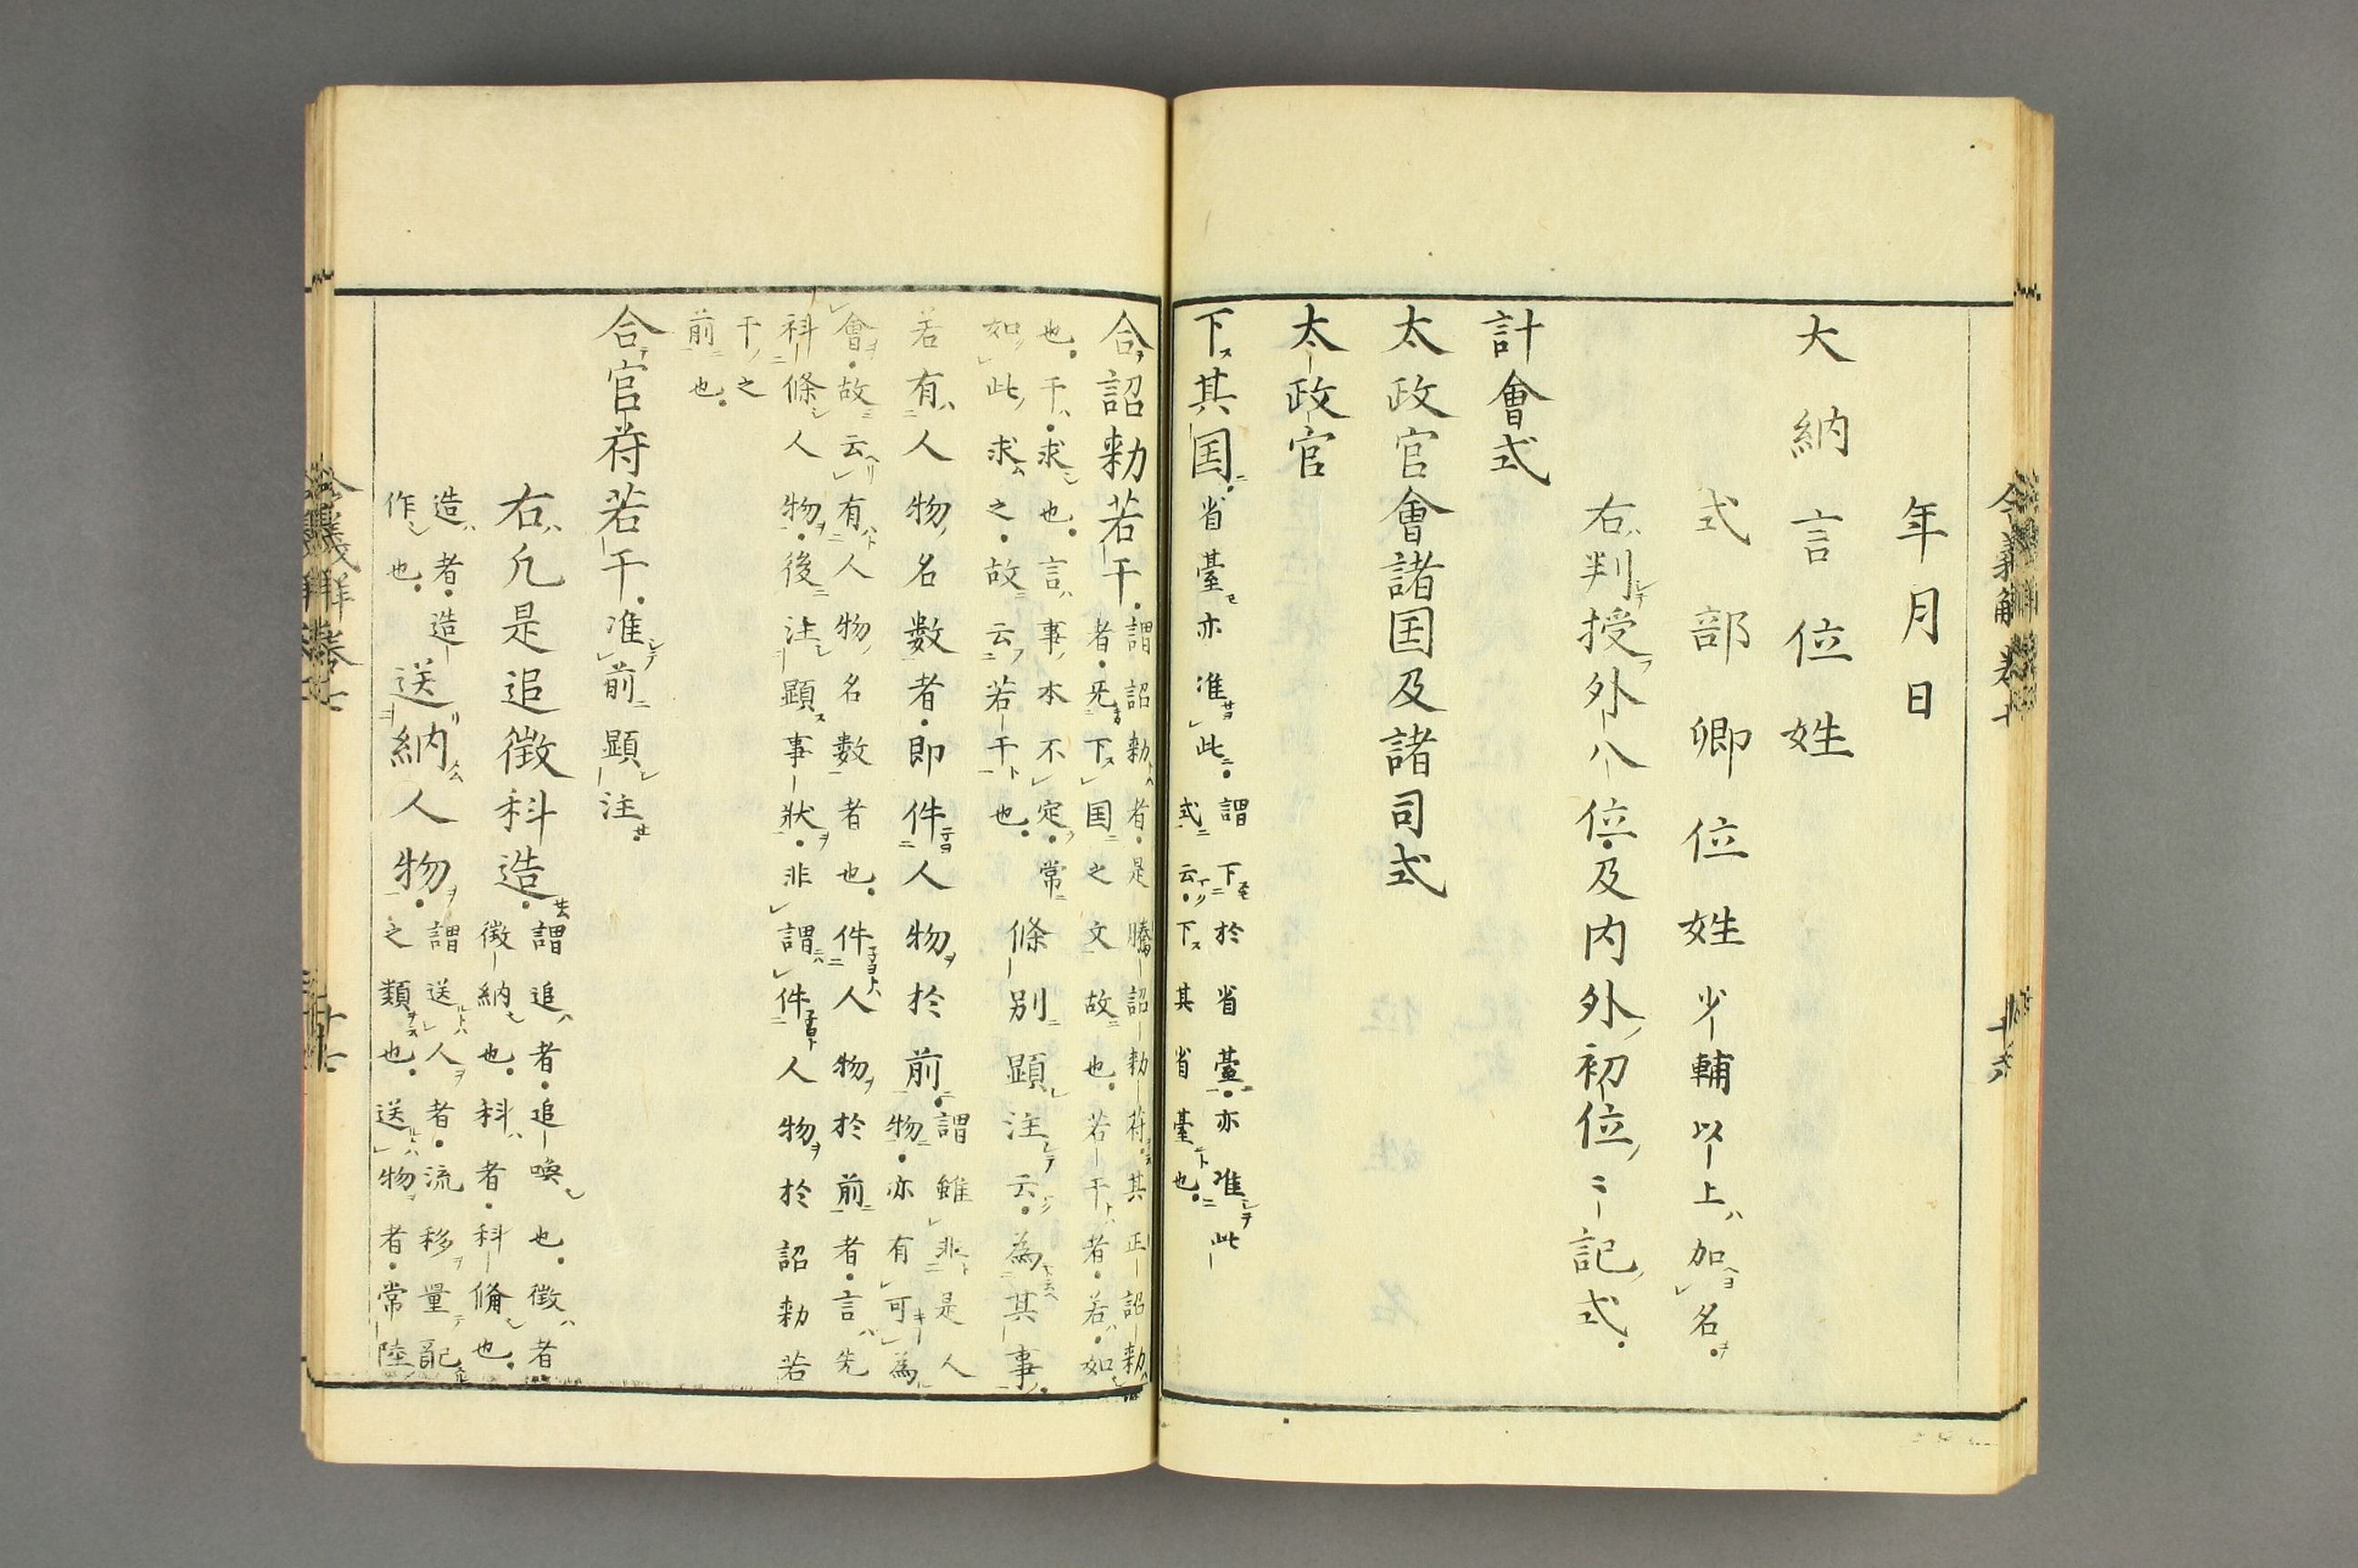 年月日
大納言位姓
式部卿位姓少輔以上加名。
右判授外八位。及内外初位〻記式。
計會式
太政官會諸国及諸司式
太政官
下其国。省臺亦准此。
謂下於省臺。亦准此
式云。下其省臺也。
合詔勅若干。
謂詔勅者。是騰詔勅苻。其正詔勅
者。旡下国之文故也。若干者。若。如
也。干。求也。言事本不定。常
如此求之。故云若干也。
條別顯注云。為其事。
若有人物名數者。即件人物於前。
謂雖非是人
物。亦有可為
會。故云有人物名數者也。件人物於前者。言先
科條人物。後注顯事狀。非謂件人物於詔勅若
干之
前也。
合官苻若干。准前顯注。
右凡是追徴科造。
謂追者。追喚也。徴者
徴納也。科者。科脩也。
造者。造
作也。
送納人物。
謂送人者。流移量配
之類也。送物者。常陸